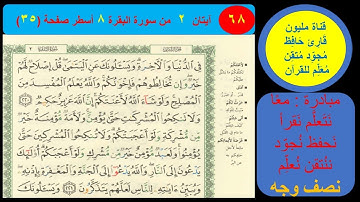 ٦٨
آيتان ٢ من سورة البقرة ٨ أسطر صفحة (٣٥)
قناة مليون
قارئ حافظ
مُجوّد مُتقن
مُعلّم للقرآن
مبادرة : معًا
نتعلّم نقرأ
نحفظ نُجوّد
نتقن نُعلّم
نصف وجه
فِي ٱلدُّنْيَا وَٱلْـَٔاخِرَةِ وَيَسْـَٔلُونَكَ عَنِ ٱلْيَتَـٰمَىٰ قُلْ إِصْلَاحٌ لَّهُمْ
خَيْرٌ وَإِن تُخَالِطُوهُمْ فَإِخْوَٰنُكُمْ وَٱللَّهُ يَعْلَمُ ٱلْمُفْسِدَ مِنَ
ٱلْمُصْلِحِ وَلَوْ شَآءَ ٱللَّهُ لَأَعْنَتَكُمْ إِنَّ ٱللَّهَ عَزِيزٌ حَكِيمٌ
وَلَا تَنكِحُوا۟ ٱلْمُشْرِكَـٰتِ حَتَّىٰ يُؤْمِنَّ وَلَأَمَةٌ مُّؤْمِنَةٌ خَيْرٌ مِّن
مُّشْرِكَةٍ وَلَوْ أَعْجَبَتْكُمْ وَلَا تُنكِحُوا۟ ٱلْمُشْرِكِينَ حَتَّىٰ
يُؤْمِنُوا۟ وَلَعَبْدٌ مُّؤْمِنٌ خَيْرٌ مِّن مُّشْرِكٍ وَلَوْ أَعْجَبَكُمْ أُو۟لَـٰٓئِكَ
يَدْعُونَ إِلَى ٱلنَّارِ وَٱللَّهُ يَدْعُوٓا۟ إِلَى ٱلْجَنَّةِ وَٱلْمَغْفِرَةِ بِإِذْنِهِ
وَيُبَيِّنُ ءَايَـٰتِهِ لِلنَّاسِ لَعَلَّهُمْ يَتَذَكَّرُونَ وَيَسْـَٔلُونَكَ